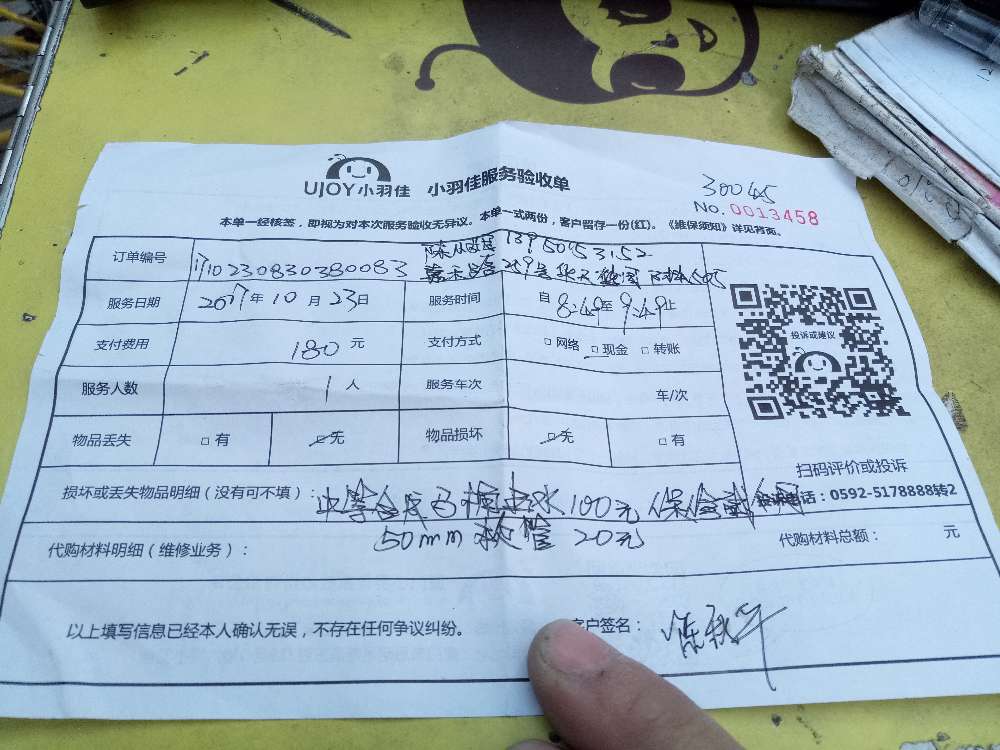 UJOY小羽佳 小羽佳服务验收单
30045
No.0013458
本单一经核签，即视为对本次服务验收无异议。本单一式两份，客户留存一份(红)。《维保须知》详见背面。
订单编号 1710230830380083 13950153152
服务日期 2017年10月23日 服务时间 自8:49至9:49止
支付费用 180元 支付方式 □网络 □现金 □转账
投诉或建议
服务人数 1人 服务车次 车/次
物品丢失 □有 □无 物品损坏 □无 □有
扫码评价或投诉
损坏或丢失物品明细（没有可不填）： 水100元 投诉电话：0592-5178888转2
代购材料明细（维修业务）： 50mm软管 20元 代购材料总额： 元
以上填写信息已经本人确认无误，不存在任何争议纠纷。 客户签名：